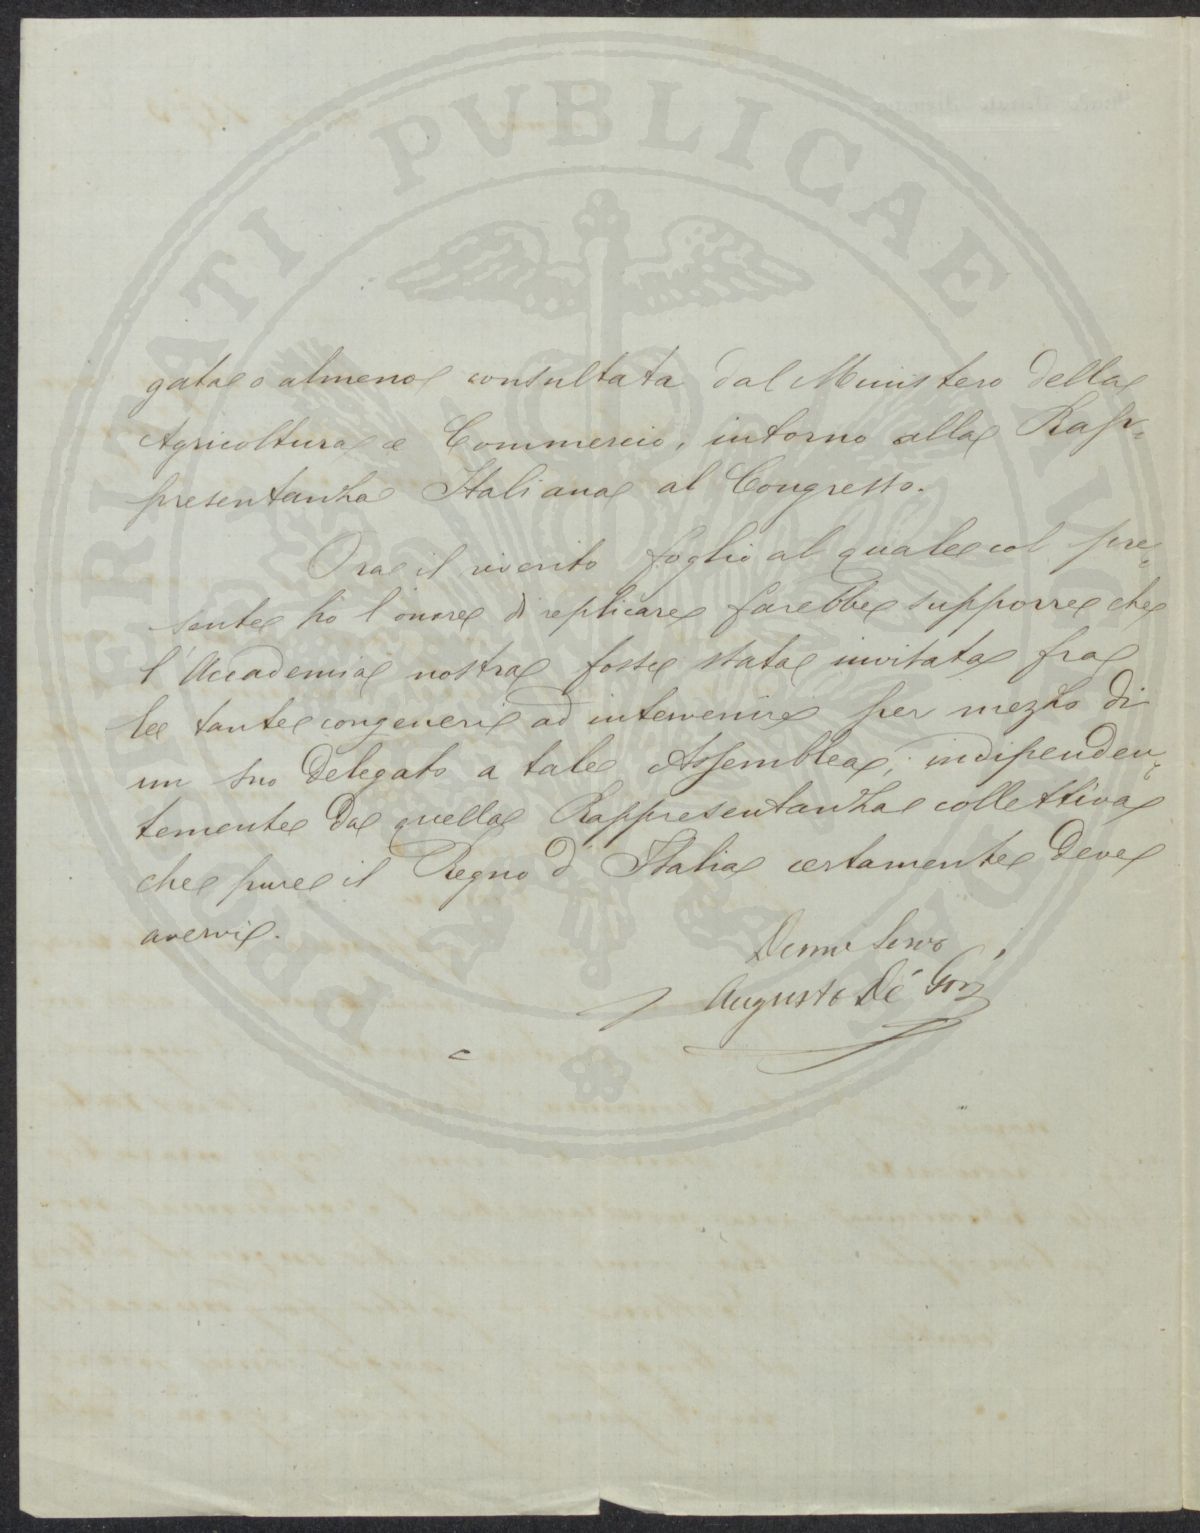 PROSPERITATI PUBLICAE AUGENDAE
gata o almeno consultata dal Ministero della
Agricoltura e Commercio, intorno alla Rap-
presentanza Italiana al Congresso.
Ora il riverito foglio al quale col pre-
sente ho l'onore di replicare farebbe supporre che
l'Accademia nostra fosse stata invitata fra
le tante congeneri ad intervenire per mezzo di
un suo Delegato a tale Assemblea, indipenden-
temente da quella Rappresentanza collettiva
che pure il Regno d'Italia certamente deve
avervi.
Devmo Servo
Augusto De' Gori